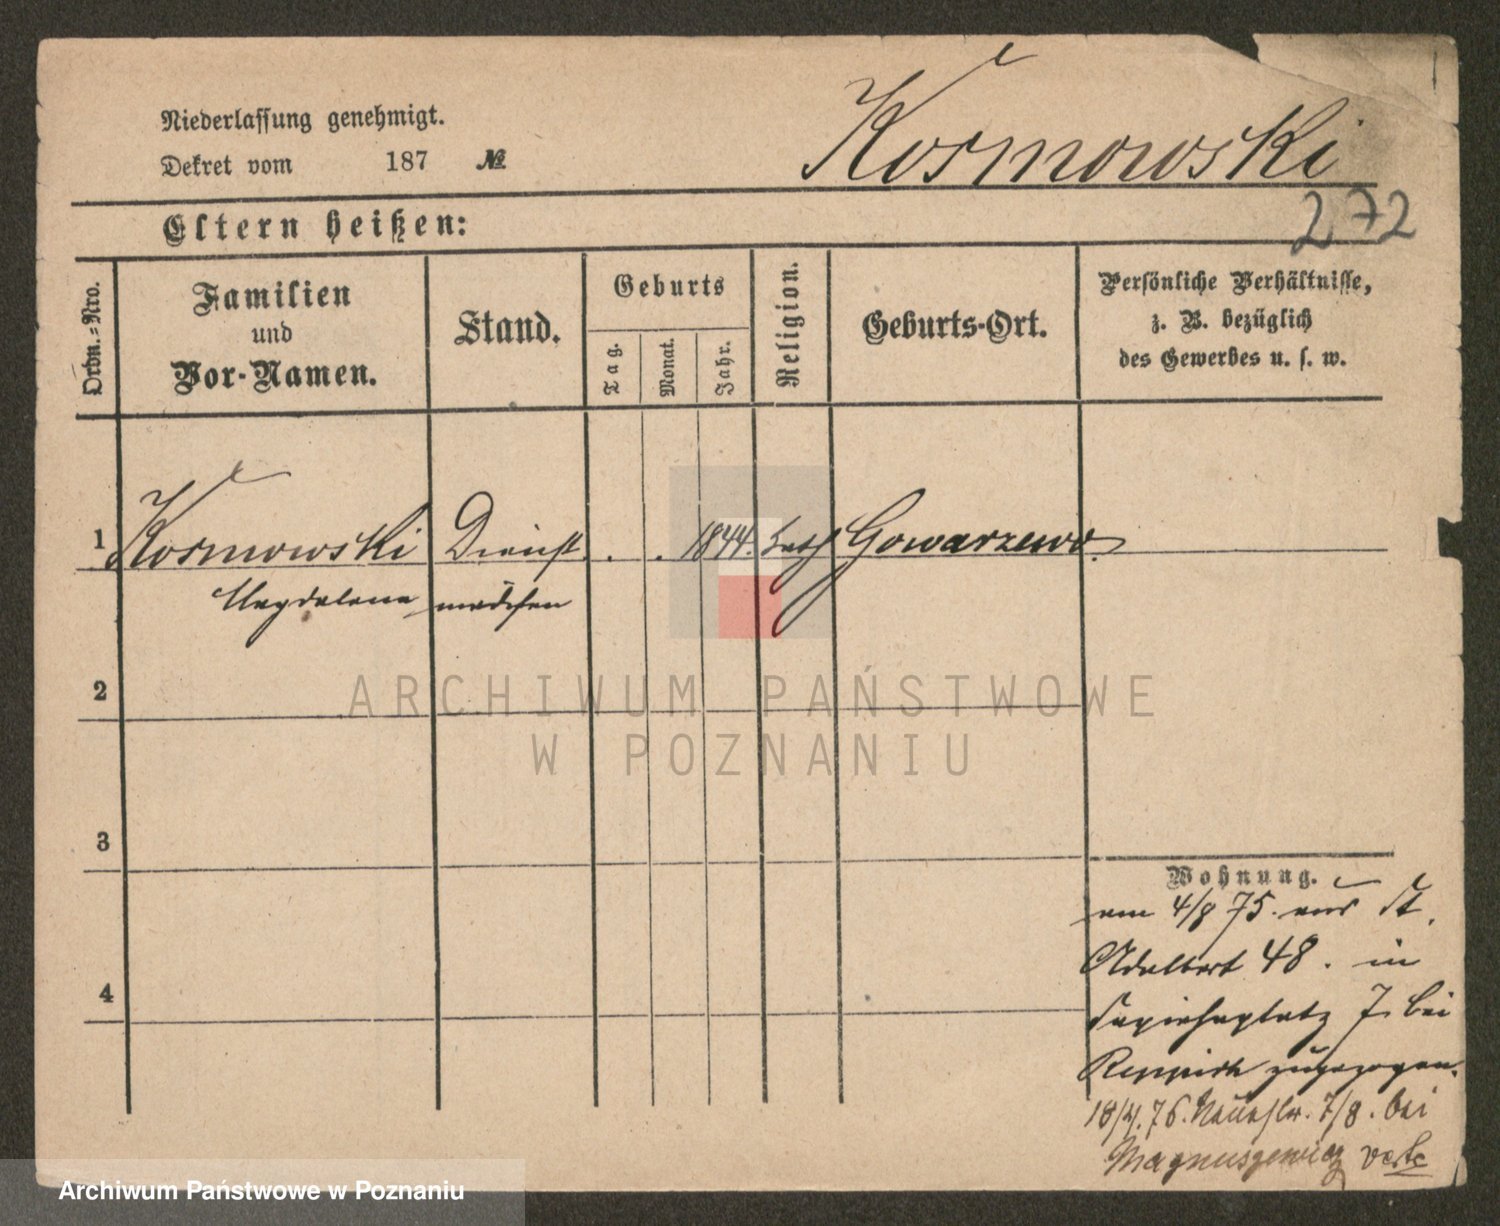 Niederlassung genehmigt.
Dekret vom 187 №
Kosmowski
272
Eltern heißen:
Ordn.-Nro.
Familien
und
Vor-Namen.
Stand.
Geburts
Tag.
Monat.
Jahr.
Religion.
Geburts-Ort.
Persönliche Verhältnisse,
z. B. bezüglich
des Gewerbes u. s. w.
1 Kosmowski Dienst . . 1844. kath Gowarzewo.
Magdalena mädchen
2
3
4
Wohnung.
am 4/8 75. aus St.
Adalbert 48. in
Sapiehaplatz 7. bei
zugezogen.
18/4. 76. 7/8. bei
Magnuszewicz verte
ARCHIWUM PAŃSTWOWE
W POZNANIU
Archiwum Państwowe w Poznaniu